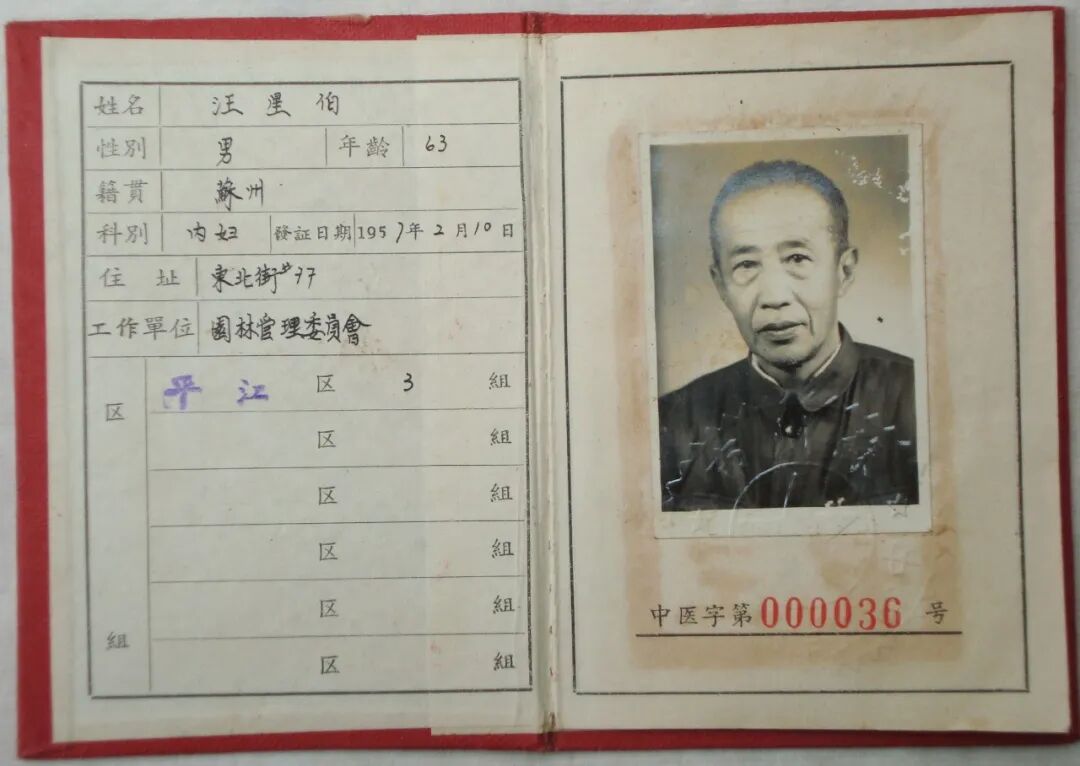 姓名 汪星伯
性別 男 年齡 63
籍貫 蘇州
科別 内妇 發証日期 1957年2月10日
住址 東北街#97
工作單位 園林管理委員會
区組 平江区 3組
区 組
区 組
区 組
区 組
区 組
中医字第000036号